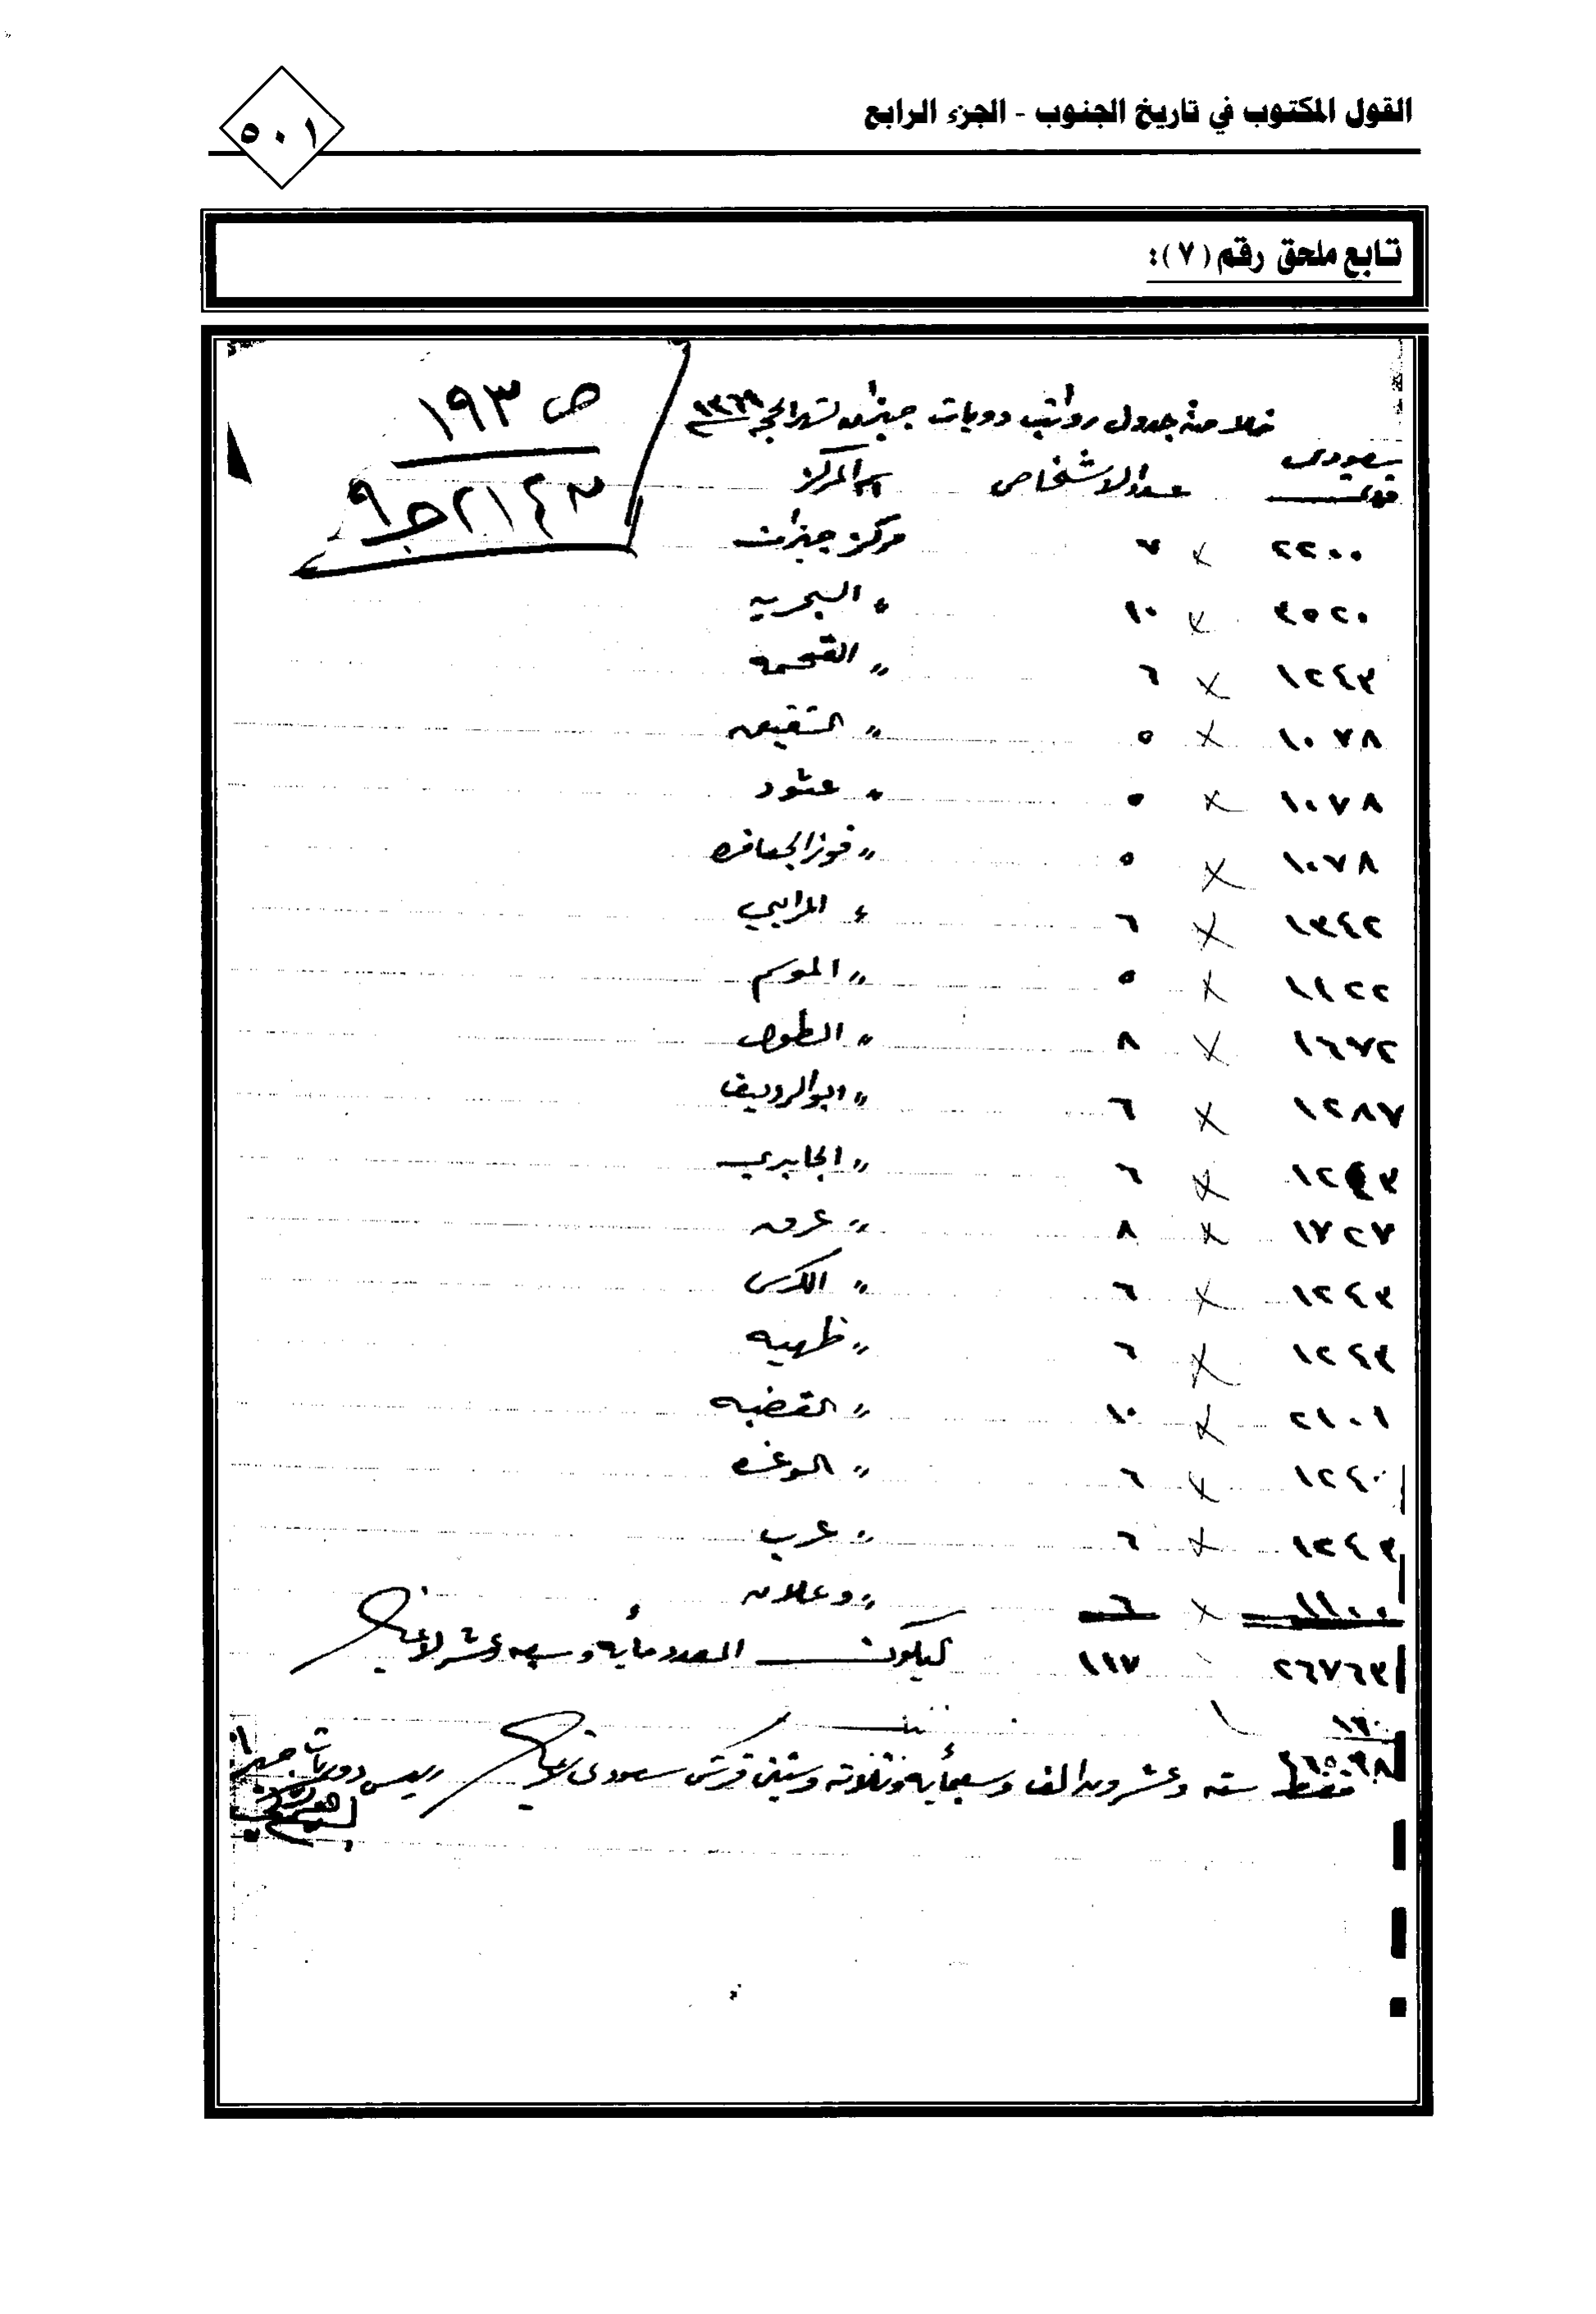 القول المكتوب في تاريخ الجنوب - الجزء الرابع
٥٠١
تابع ملحق رقم (٧):
ص ١٩٣
خلاصة جدول رواتب دوريات جيزان لشهر الحجه ١٣٦٩
سعودي
قرش عدد الاشخاص اسم المركز
٢٢٠٠ × ٧ مركز جيزان
٢٥٢٠ × ١٠ " البحريه
١٢٤٣ × ٦ " القحمه
١٠٧٨ × ٥ " الشقيق
١٠٧٨ × ٥ " عتود
١٠٧٨ × ٥ " فوز الجعافره
١٣٤٢ × ٦ " المرابي
١١٢٢ × ٥ " الموسم
١٦٧٢ × ٨ " الطوال
١٢٨٧ × ٦ " ابو الرديف
١٢٤٣ × ٦ " الجابري
١٧٢٧ × ٨ "
١٢٤٣ × ٦ " الكرس
١٢٤٣ × ٦ " ظهيه
٢١٠١ × ١٠ " القضبه
١٢٤٠ × ٦ " الوغره
١٢٤٣ × ٦ "
١١٠٠ × ٦ " وعلان
٢٦٧٦٣ ١١٧ ليكون العدد مأية وسبعه وعشر لاغير
فقط سته وعشرون الف وسبعمأية وثلاثه وستين قرش سعودي لاغير
رئيس دوريات جيزان